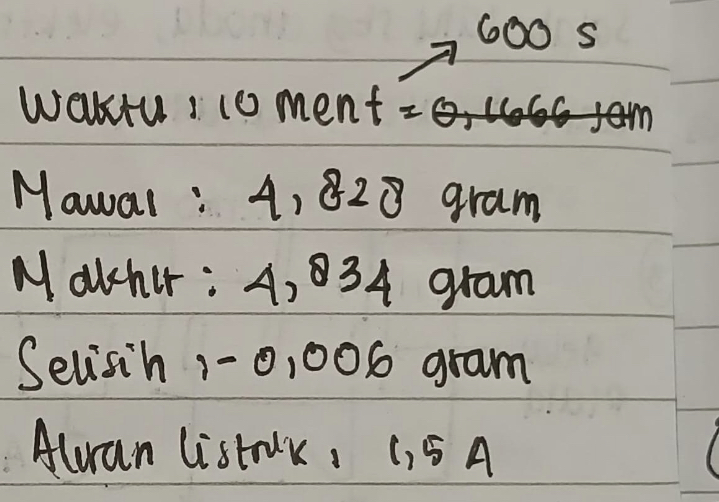 600 s
Waktu : 10 menit = 0,1666 jam
M awal : 4,828 gram
M akhir : 4,834 gram
Selisih : -0,006 gram
Aliran listrik : 1,5 A